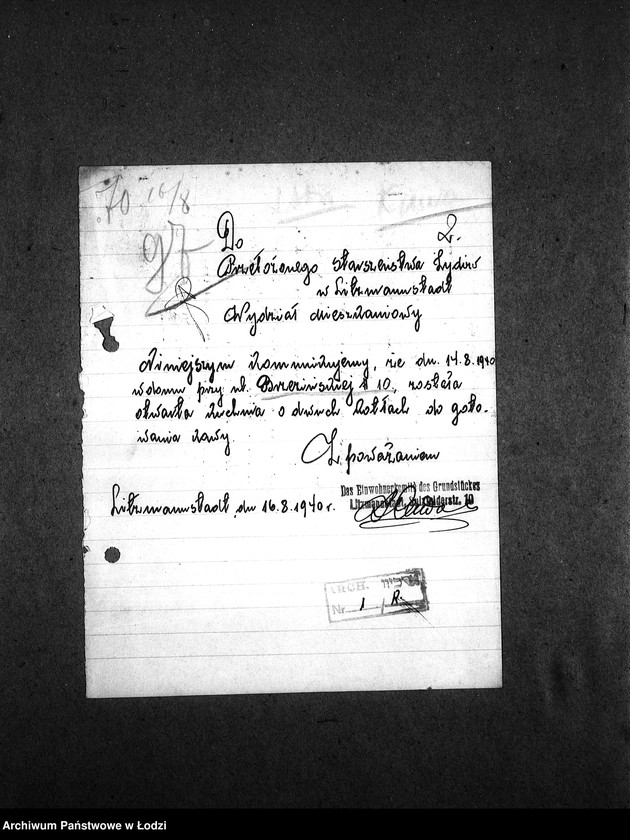 70 16/8
97
2.
Do
Przełożonego Starszeństwa Żydów
w Litzmannstadt
Wydział Mieszkaniowy
Niniejszym komunikujemy, że dn. 14.8.1940
w domu przy ul. Brzezińskiej № 10, została
otwarta kuchnia o dwuch kotłach do goto-
wania kawy
Z poważaniem
Das Einwohnerkomité des Grundstückes
Litzmannstadt, Sulzfelderstr. 10
Litzmannstadt, dn 16.8.1940 r.
ARCH.
Nr. 1 / R.
Archiwum Państwowe w Łodzi